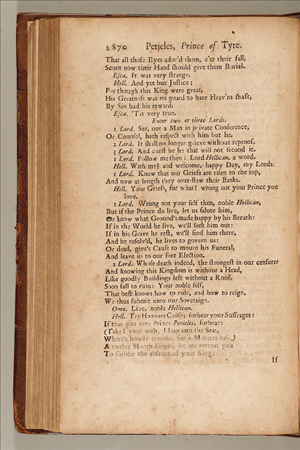 2870 Pericles, Prince of Tyre.
That all those Eyes ador'd them, e'er their fall,
Scorn now their Hand should give them Burial.
Esca. It was very strange.
Hell. And yet but Justice;
For though this King were great,
His Greatness was no guard to bare Heav'ns shaft,
By Sin had his reward.
Esca. 'Tis very true.
Enter two or three Lords.
1 Lord. See, not a Man in private Conference,
Or Counsel, hath respect with him but he.
2 Lord. It shall no longer grieve without reproof.
3 Lord. And curst be he that will not second it.
1 Lord. Follow me then: Lord Hellican, a word.
Hell. With me? and welcome, happy Day, my Lords.
1 Lord. Know that our Griefs are risen to the top,
And now at length they over-flow their Banks.
Hell. Your Griefs, for what? wrong not your Prince you
love.
1 Lord. Wrong not your self then, noble Hellican,
But if the Prince do live, let us salute him,
Or know what Ground's made happy by his Breath:
If in the World he live, we'll seek him out:
If in his Grave he rest, we'll find him there,
And be resolv'd, he lives to govern us:
Or dead, give's Cause to mourn his Funeral,
And leave us to our free Election.
2 Lord. Whose death indeed, the strongest in our censure;
And knowing this Kingdom is without a Head,
Like goodly Buildings left without a Roof,
Soon fall to ruin: Your noble self,
That best knows how to rule, and how to reign,
We thus submit unto our Soveraign.
Omn. Live, noble Hellican.
Hell. Try Honours Cause; forbear your Suffrages:
If that you love Prince Pericles, forbear:
(Take I your wish, I leap into the Seat,
Where's hourly trouble, for a Minutes ease,)
A twelve Month longer, let me entreat you
To forbear the absence of your King;
If